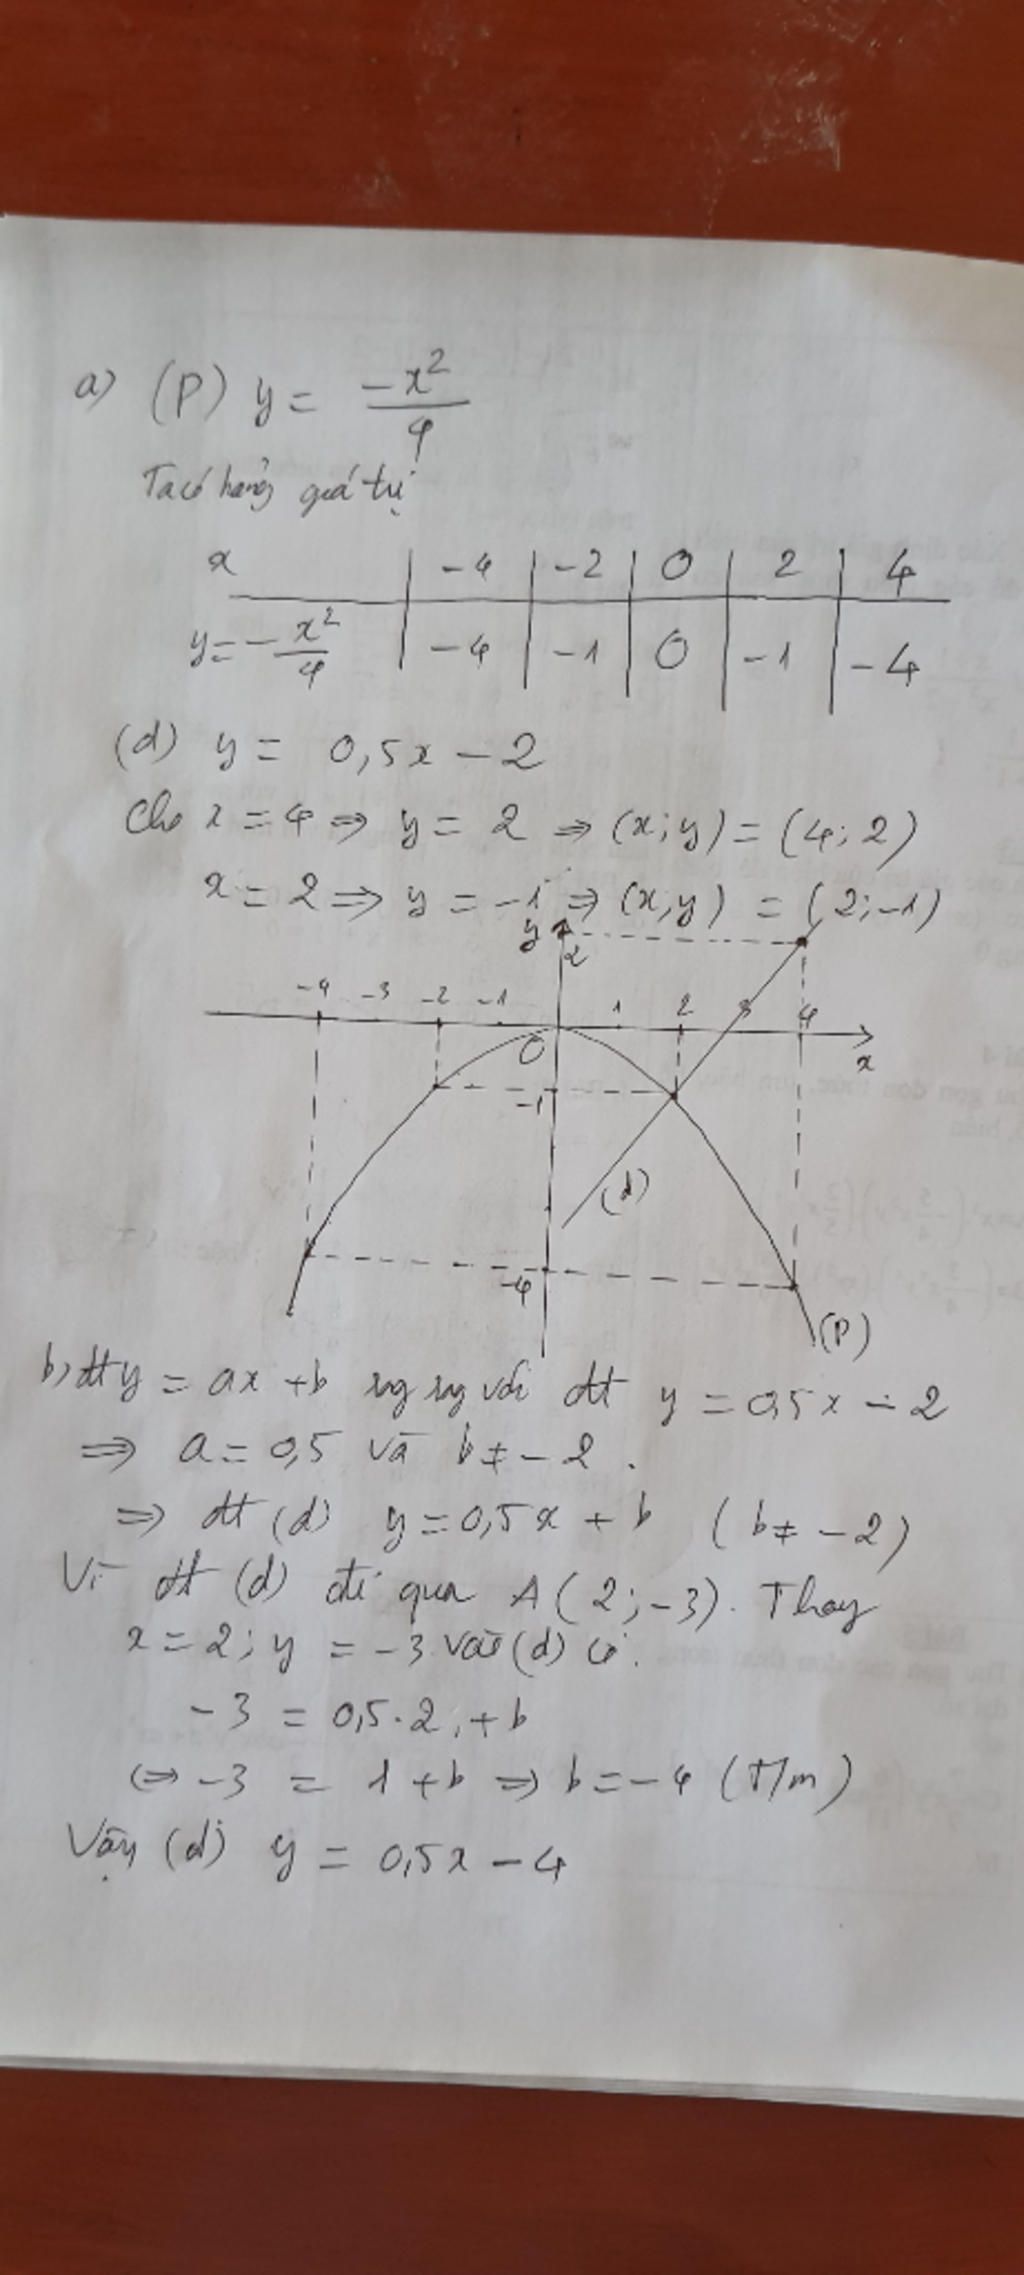 a) (P) y = -x²/4
Ta có bảng giá trị
x | -4 | -2 | 0 | 2 | 4
y = -x²/4 | -4 | -1 | 0 | -1 | -4
(d) y = 0,5x - 2
Cho x = 4 ⇒ y = 2 ⇒ (x; y) = (4; 2)
x = 2 ⇒ y = -1 ⇒ (x; y) = (2; -1)
y 2
-4 -3 -2 -1 1 2 3 4
0 x
-1
(d)
-4
(P)
b, đt y = ax + b sg sg với đt y = 0,5x - 2
⇒ a = 0,5 và b ≠ -2.
⇒ đt (d) y = 0,5x + b (b ≠ -2)
Vì đt (d) đi qua A(2; -3). Thay
x = 2; y = -3 vào (d) có.
-3 = 0,5.2 + b
⇔ -3 = 1 + b ⇒ b = -4 (T/m)
Vậy (d) y = 0,5x - 4